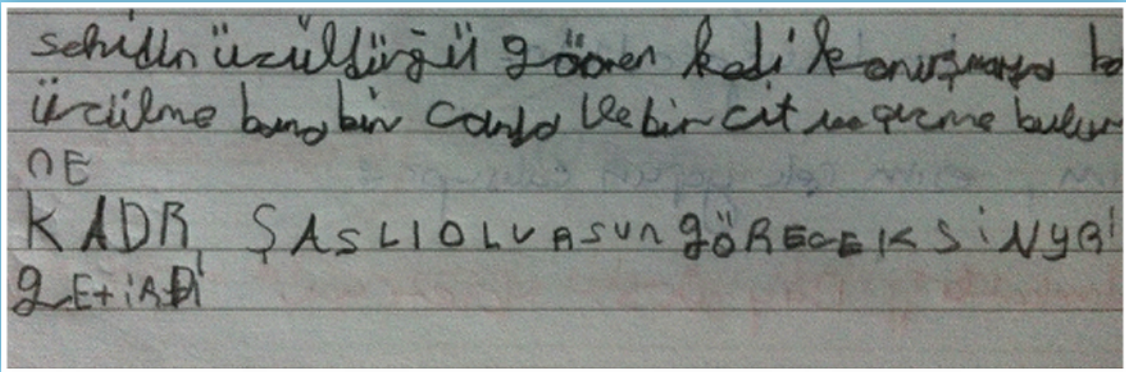 sehidln üzüldüğü gören kedi konuşmaya ba
üzülme bana bir çanta ve bir çit çizme bulur
nE
KADR ŞASLIOLVASUn gÖRECEKSiNyRi
gEtiRDi